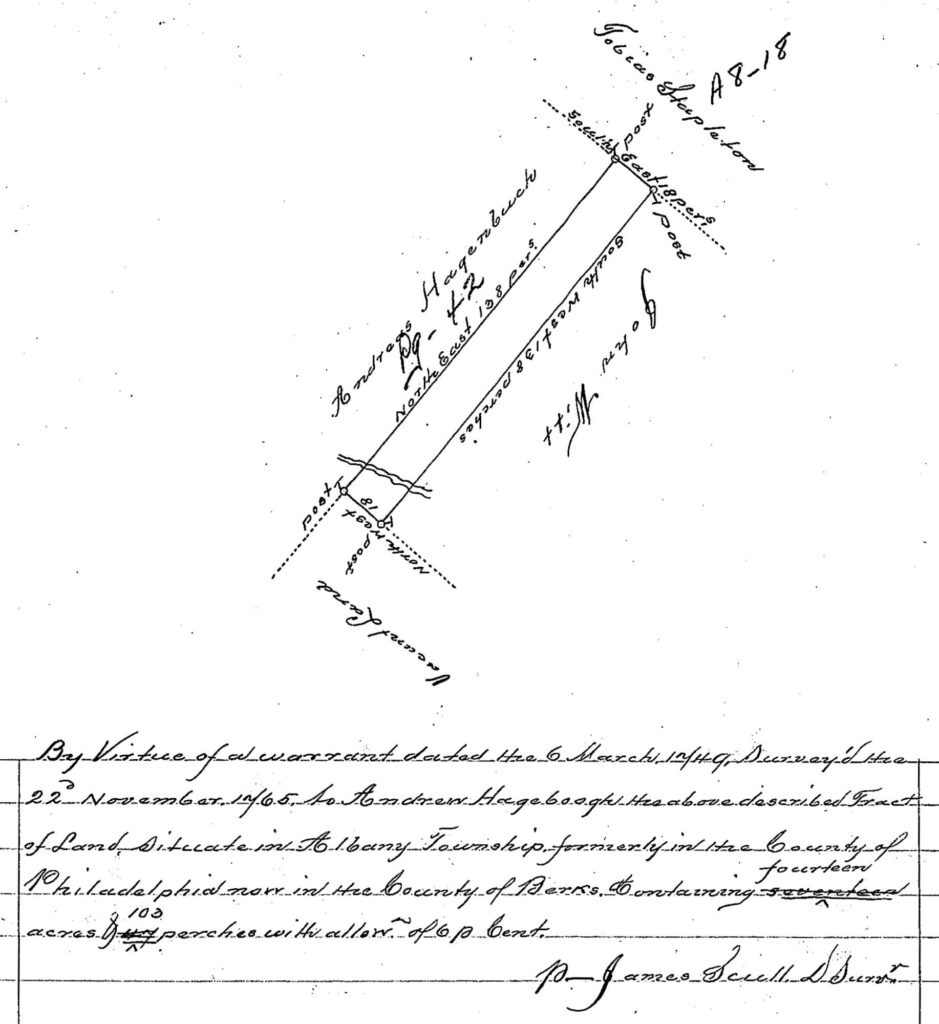 Tobias Stapleton
A8-18
post
South East 18 pers.
post
Andreas Hagenbuch
D9-42
North East 138 pers.
South West 138 perches.
John Witt
post
18
North West
post
Vacant Land
By Virtue of a warrant dated the 6 March, 1749, Survey'd the
22d November 1765, to Andrew Hageboogh the above described Tract
of Land, Situate in Albany Township, formerly in the County of
fourteen
Philadelphia now in the County of Berks. Containing seventeen
103
acres & 47 perches with allow. of 6 p Cent.
p James Scull. D Survr